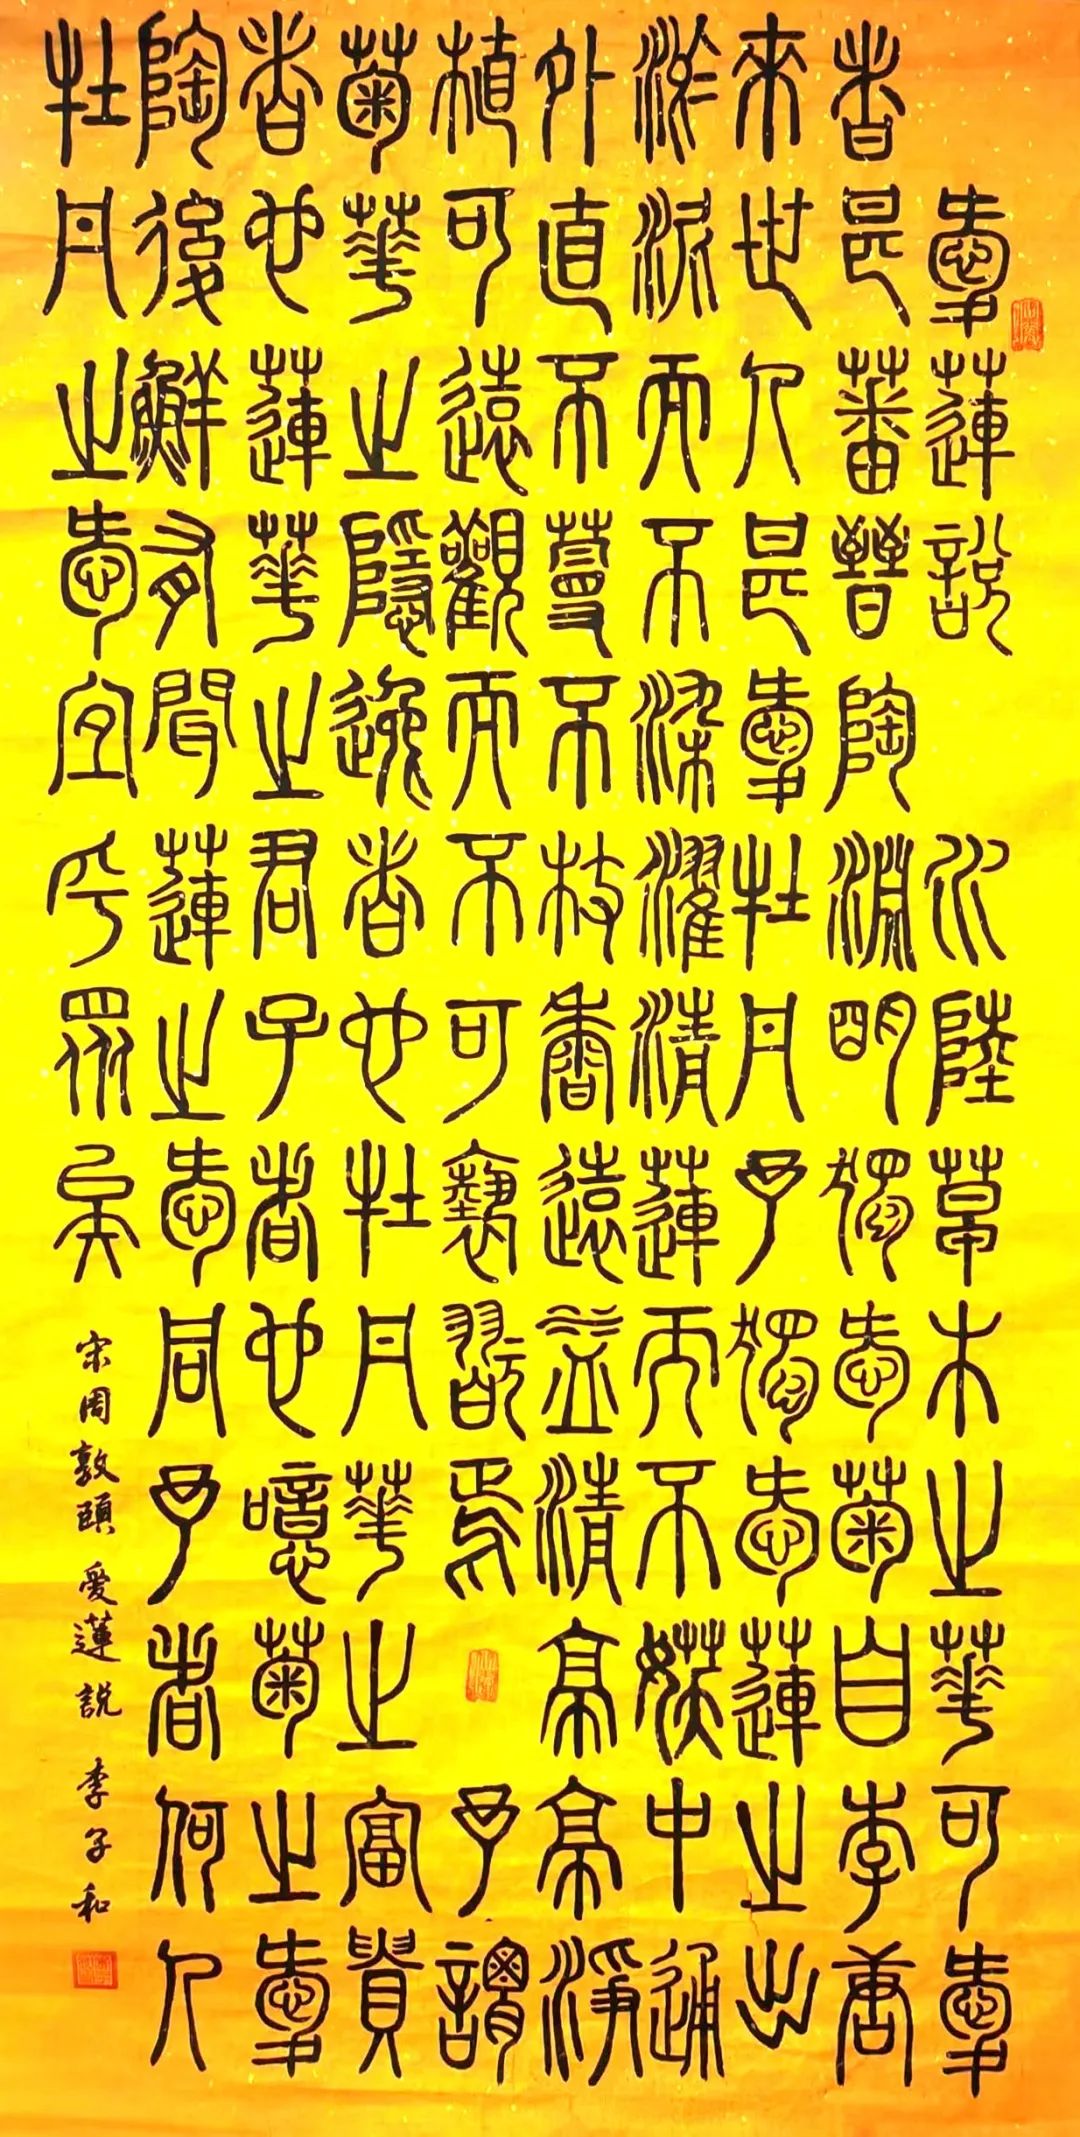 愛蓮說 水陸草木之華可愛
者甚蕃晉陶淵明獨愛菊自李唐
來世人甚愛牡丹予獨愛蓮之出
淤泥而不染濯清蓮而不妖中通
外直不蔓不枝香遠益清亭亭淨
植可遠觀而不可褻翫焉 予謂
菊華之隱逸者也牡丹華之富貴
者也蓮華之君子者也噫菊之愛
陶後鮮有聞蓮之愛同予者何人
牡丹之愛宜乎眾矣
宋周敦頤愛蓮說 李子和